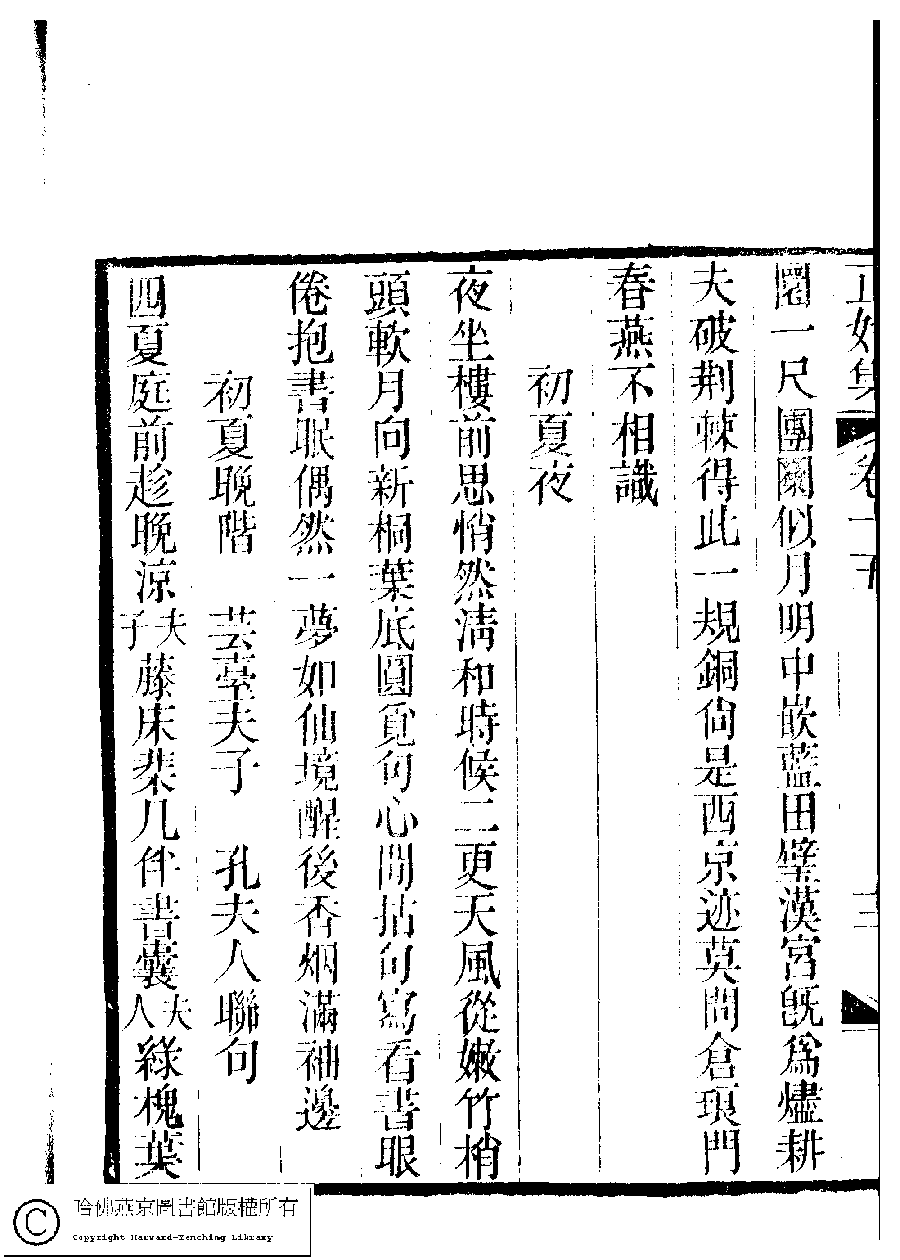 正始集 卷十 三
閣一尺團圞似月明中嵌藍田璧漢宮旣爲燼耕
夫破荆棘得此一規銅尙是西京迹莫問倉琅門
春燕不相識
初夏夜
夜坐樓前思悄然淸和時候二更天風從嫩竹梢
頭軟月向新桐葉底圓覓句心閒拈句寫看書眼
倦抱書眠偶然一夢如仙境醒後香烟滿袖邊
初夏晚階 芸臺夫子 孔夫人聯句
四夏庭前趁晚涼夫子藤床棐几伴書囊夫人綠槐葉
哈佛燕京圖書館版權所有
Copyright Harvard-Yenching Library